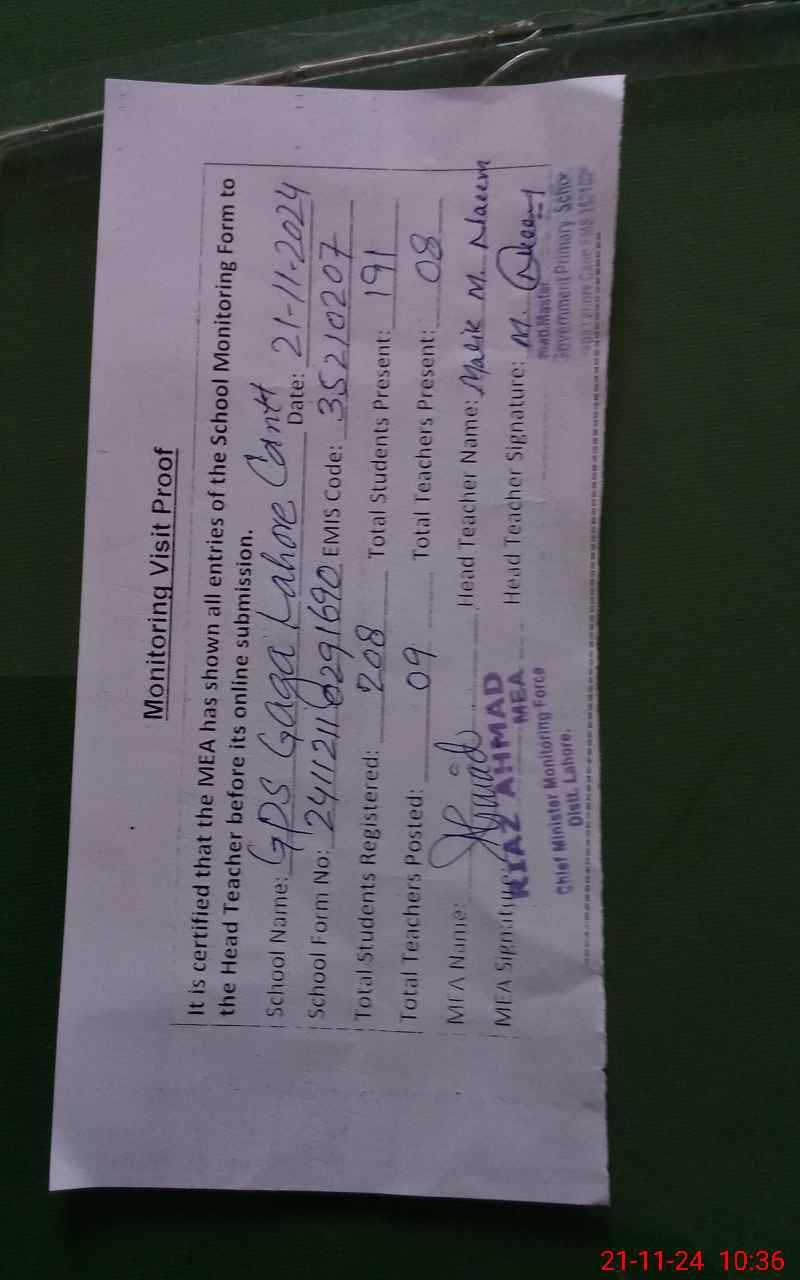 Monitoring Visit Proof
It is certified that the MEA has shown all entries of the School Monitoring Form to
the Head Teacher before its online submission.
School Name: GPS Gaga Lahore Cantt Date: 21-11-2024
School Form No: EMIS Code: 35210207
Total Students Registered: 208 Total Students Present: 191
Total Teachers Posted: 09 Total Teachers Present: 08
MEA Name: Head Teacher Name: Malik M. Naeem
MEA Signature: Head Teacher Signature: M. Naeem
RIAZ AHMAD
MEA
Chief Minister Monitoring Force
Distt. Lahore.
Head Master
Government Primary School
21-11-24 10:36